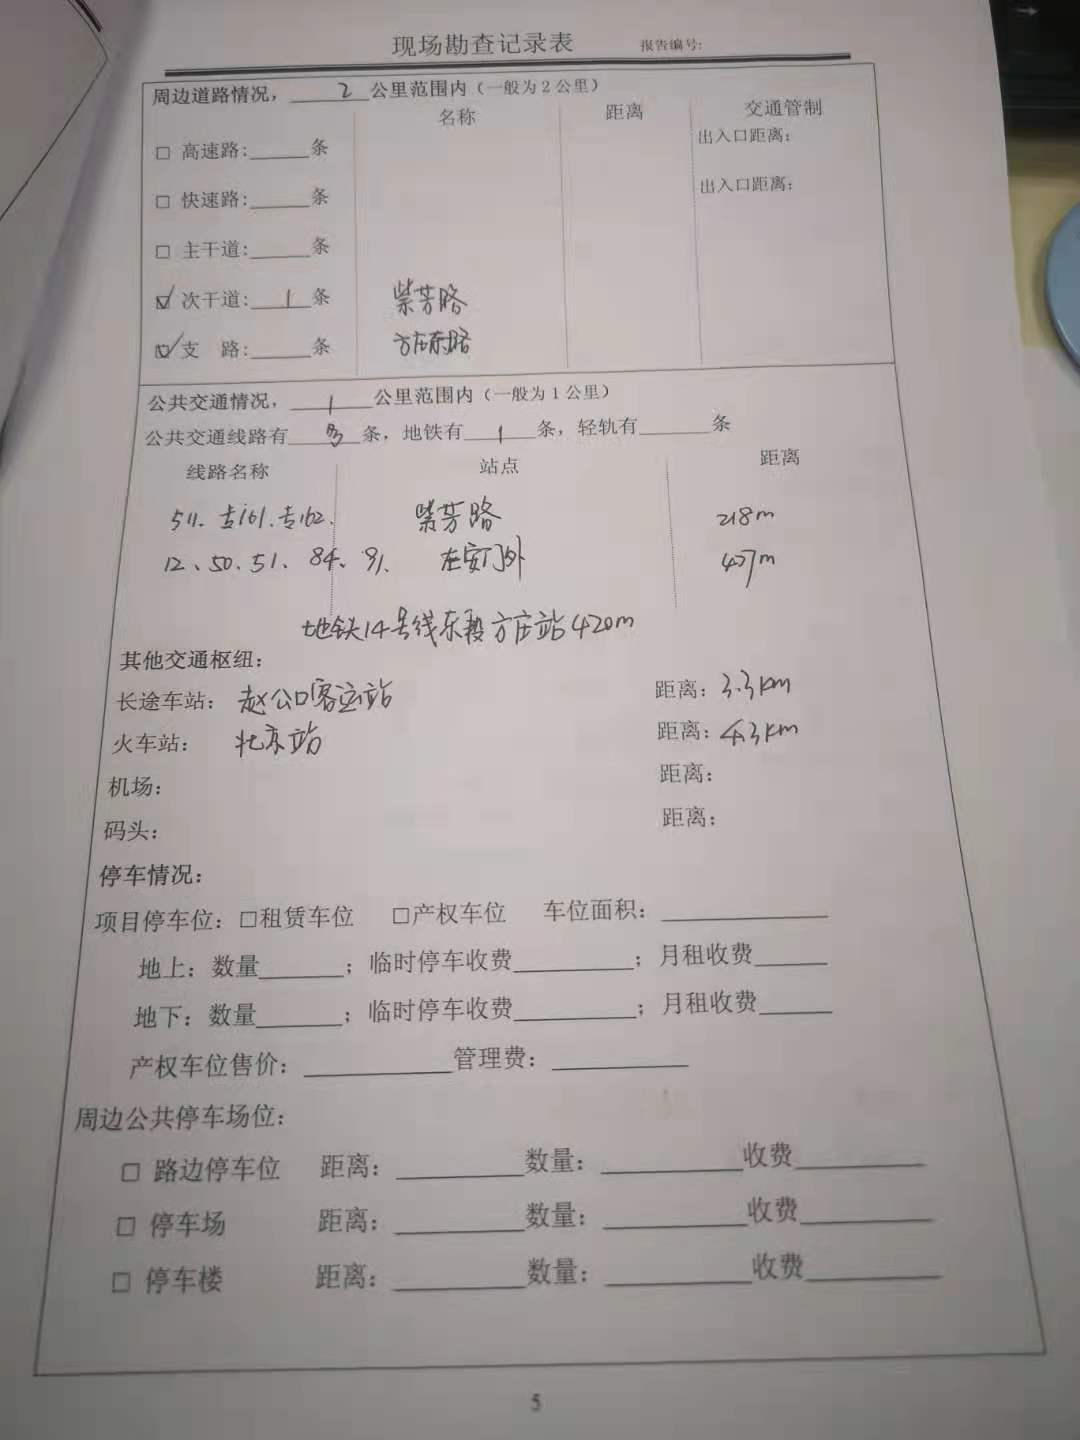 现场勘查记录表 报告编号:
周边道路情况，2公里范围内（一般为2公里）
名称 距离 交通管制
□ 高速路:______条 出入口距离：
□ 快速路:______条 出入口距离：
□ 主干道:______条
☑ 次干道:__1__条 紫芳路
☑ 支 路:______条 方庄东路
公共交通情况，1公里范围内（一般为1公里）
公共交通线路有 多 条，地铁有 1 条，轻轨有______条
线路名称 站点 距离
511、专161、专162、 紫芳路 218m
12、50、51、84、91、 左安门外 407m
地铁14号线东段方庄站420m
其他交通枢纽：
长途车站：赵公口客运站 距离：3.3km
火车站：北京站 距离：4.3km
机场： 距离：
码头： 距离：
停车情况：
项目停车位：□租赁车位 □产权车位 车位面积：__________
地上：数量______；临时停车收费________；月租收费_____
地下：数量______；临时停车收费________；月租收费_____
产权车位售价：__________管理费：_________
周边公共停车场位：
□ 路边停车位 距离：________数量：_________收费________
□ 停车场 距离：________数量：_________收费________
□ 停车楼 距离：________数量：_________收费________
5